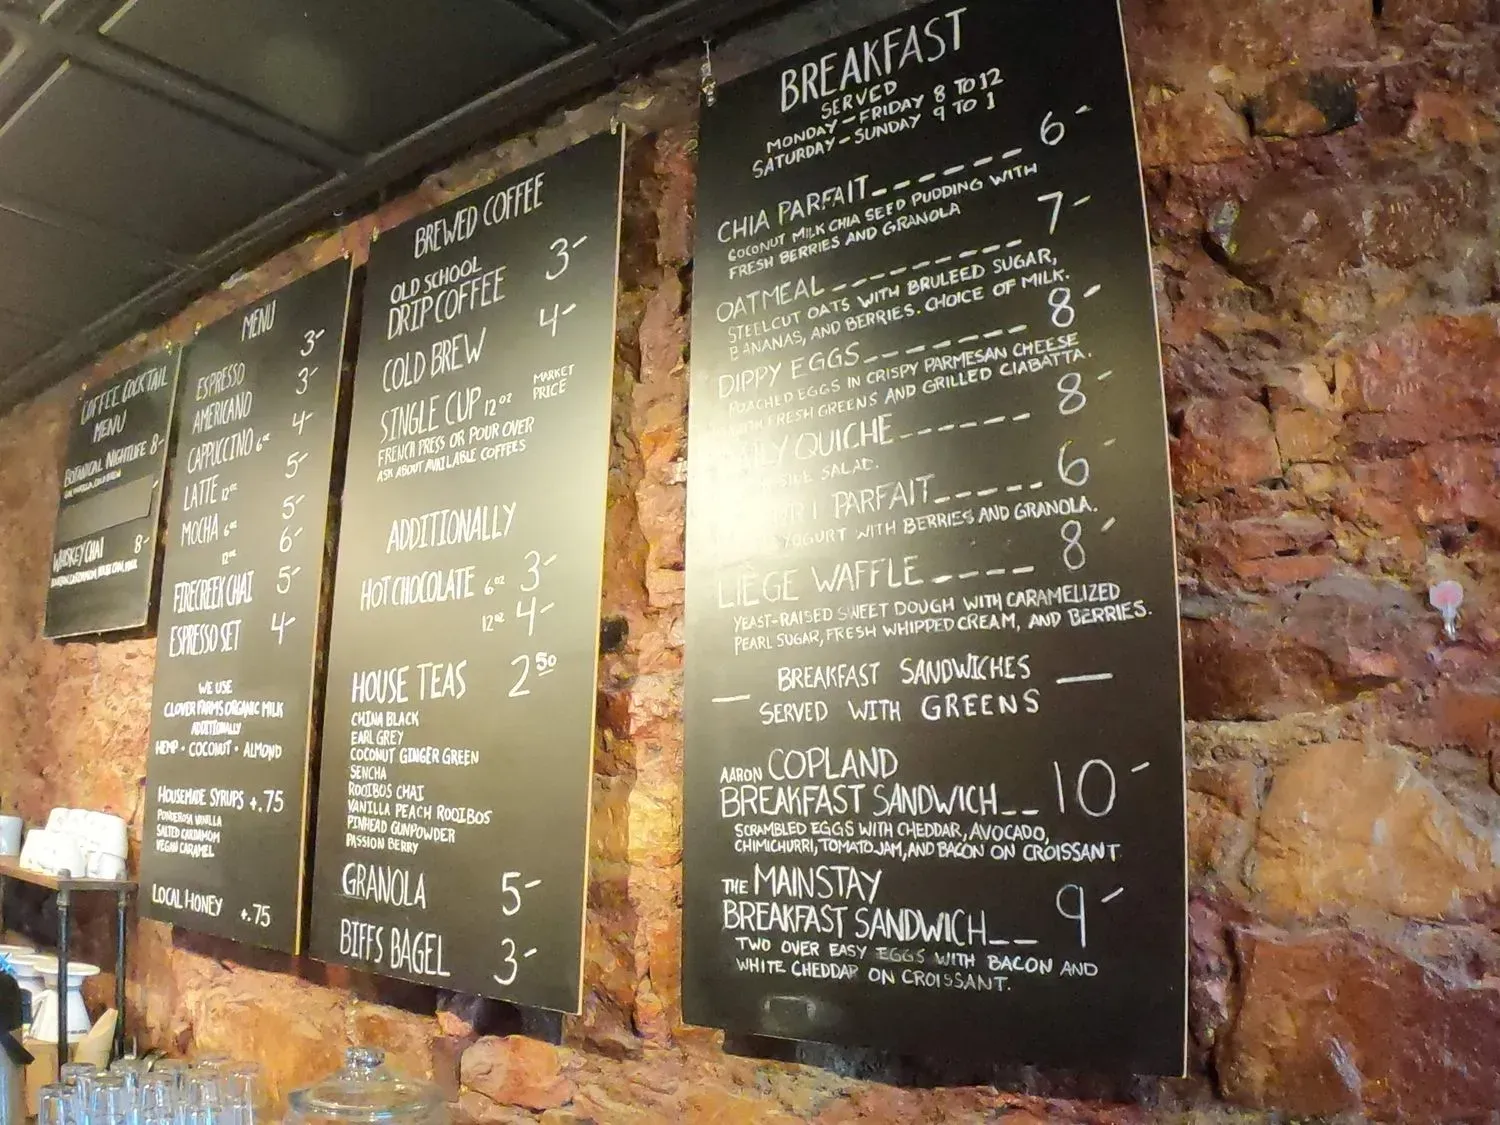 COFFEE COCKTAIL
MENU
BOTANICAL NIGHTLIFE 8-
WHISKEY CHAI 8-
MENU
ESPRESSO 3-
AMERICANO 3-
CAPPUCCINO 6oz 4-
LATTE 12oz 5-
MOCHA 6oz 5-
12oz 6-
FIRECREEK CHAI 5-
ESPRESSO SET 4-
WE USE
CLOVER FARMS ORGANIC MILK
ADDITIONALLY
HEMP • COCONUT • ALMOND
HOUSEMADE SYRUPS +.75
PONDEROSA VANILLA
SALTED CARDAMOM
VEGAN CARAMEL
LOCAL HONEY +.75
BREWED COFFEE
OLD SCHOOL
DRIP COFFEE 3-
COLD BREW 4-
SINGLE CUP 12oz MARKET
PRICE
FRENCH PRESS OR POUR OVER
ASK ABOUT AVAILABLE COFFEES
ADDITIONALLY
HOT CHOCOLATE 6oz 3-
12oz 4-
HOUSE TEAS 2 50
CHINA BLACK
EARL GREY
COCONUT GINGER GREEN
SENCHA
ROOIBUS CHAI
VANILLA PEACH ROOIBOS
PINHEAD GUNPOWDER
PASSION BERRY
GRANOLA 5-
BIFFS BAGEL 3-
BREAKFAST
SERVED
MONDAY-FRIDAY 8 TO 12
SATURDAY-SUNDAY 9 TO 1
CHIA PARFAIT------- 6-
COCONUT MILK CHIA SEED PUDDING WITH
FRESH BERRIES AND GRANOLA
OATMEAL--------- 7-
STEELCUT OATS WITH BRULEED SUGAR,
BANANAS, AND BERRIES. CHOICE OF MILK.
DIPPY EGGS-------- 8-
POACHED EGGS IN CRISPY PARMESAN CHEESE
WITH FRESH GREENS AND GRILLED CIABATTA.
DAILY QUICHE------ 8-
SIDE SALAD.
PARFAIT----- 6-
YOGURT WITH BERRIES AND GRANOLA.
LIÈGE WAFFLE---- 8-
YEAST-RAISED SWEET DOUGH WITH CARAMELIZED
PEARL SUGAR, FRESH WHIPPED CREAM, AND BERRIES.
BREAKFAST SANDWICHES
SERVED WITH GREENS
AARON COPLAND
BREAKFAST SANDWICH-- 10-
SCRAMBLED EGGS WITH CHEDDAR, AVOCADO,
CHIMICHURRI, TOMATO JAM, AND BACON ON CROISSANT
THE MAINSTAY
BREAKFAST SANDWICH-- 9-
TWO OVER EASY EGGS WITH BACON AND
WHITE CHEDDAR ON CROISSANT.